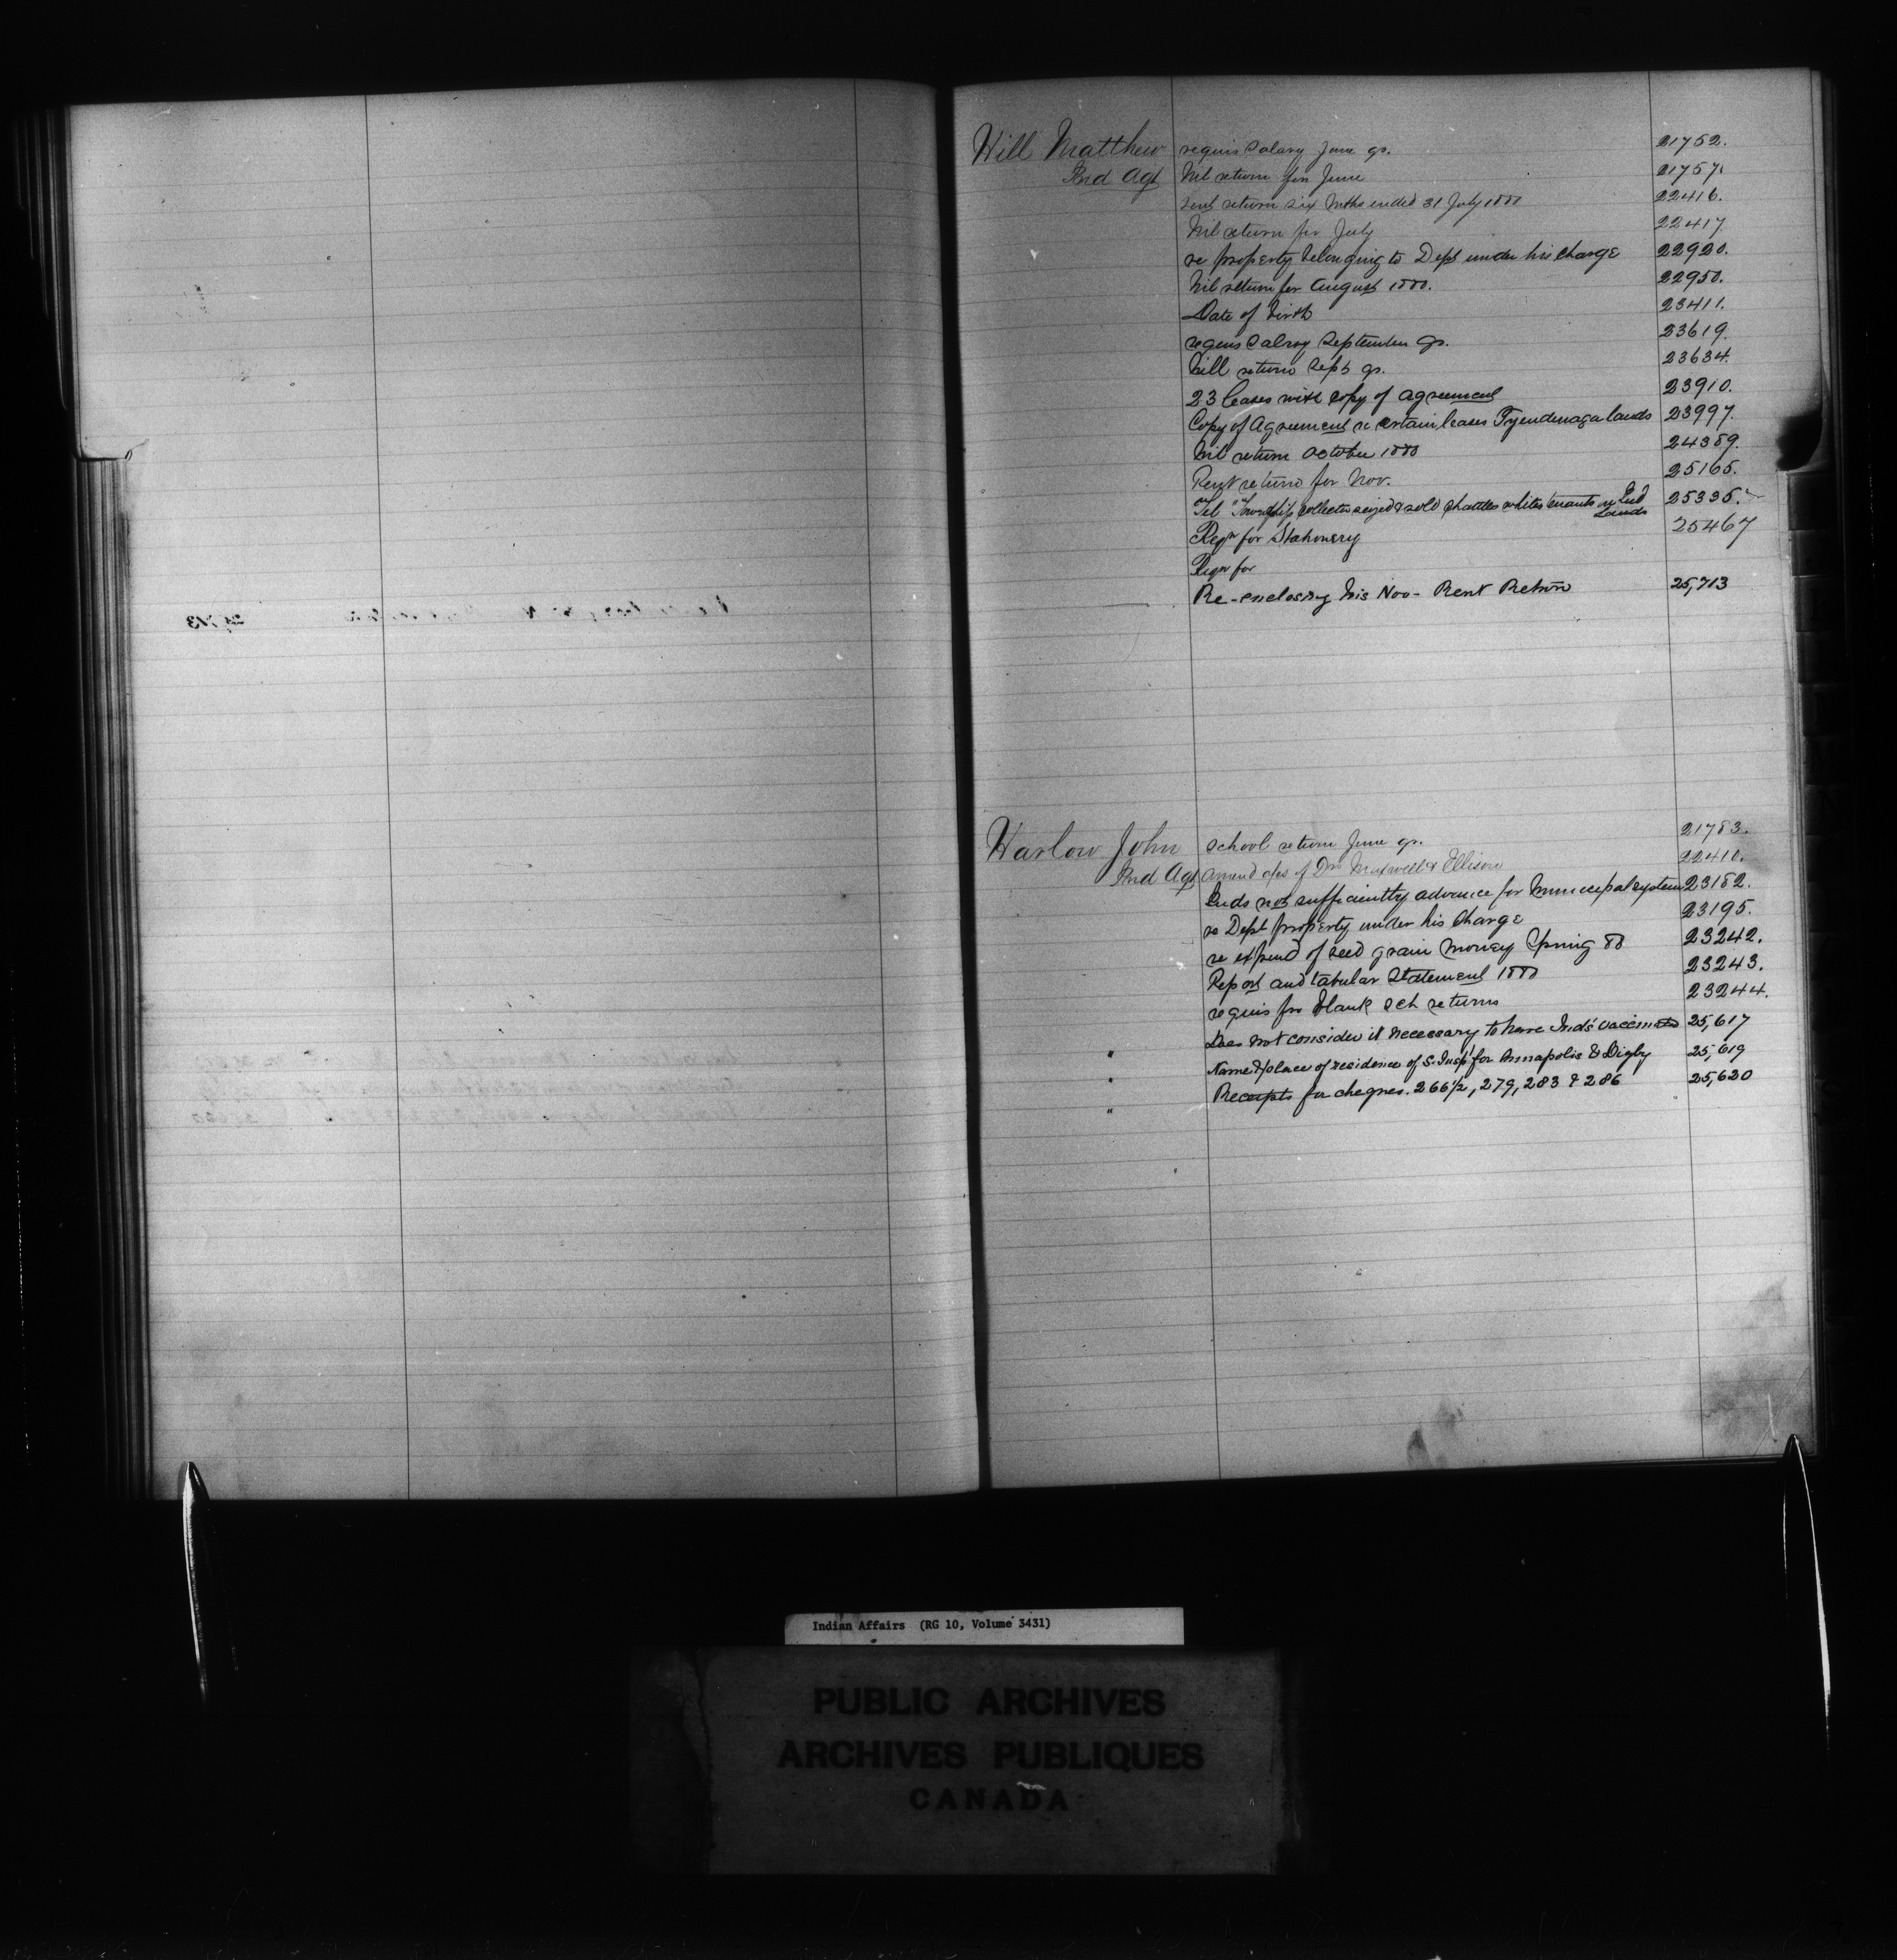 Hill Matthew requis Salary June qr. 21752.
Ind Agt Nil return for June 21757.
rent return six Mths ended 31 July 1888 22416.
Nil return for July 22417
re property belonging to Dept under his charge 22920.
Nil return for August 1888. 22950.
Date of birth 23411.
requis Salray September qr. 23619.
Nill return Sept qr. 23634.
23 leases with copy of agreement 23910.
Copy of Agreement re certain leases Tyendenaga lands 23997.
Nil return October 1888 24389.
Rent return for Nov. 25165.
Tel "Township collector seized & sold chattles white tenants on Ind Lands 25335.
Reqn for Stationery 25467
Reqn for
Re-enclosing his Nov- Rent Return 25,713
Harlow John School return June qr. 21783.
Ind Agt Amend a/cs of Drs Maxwell & Ellison 22410.
Inds not sufficiently advance for Municipal system 23182.
re Dept property under his charge 23195.
re expend of seed grain money Spring 88 23242.
Report and tabular Statement 1888 23243.
requis for blank sch returns 23244.
" Does not consider it necessary to have Inds' vaccinated 25,617
" Name & place of residence of S. Insp' for Annapolis & Digby 25,619
" Receipts for cheques. 266½, 279, 283 & 286 25,620
Indian Affairs (RG 10, Volume 3431)
PUBLIC ARCHIVES
ARCHIVES PUBLIQUES
CANADA